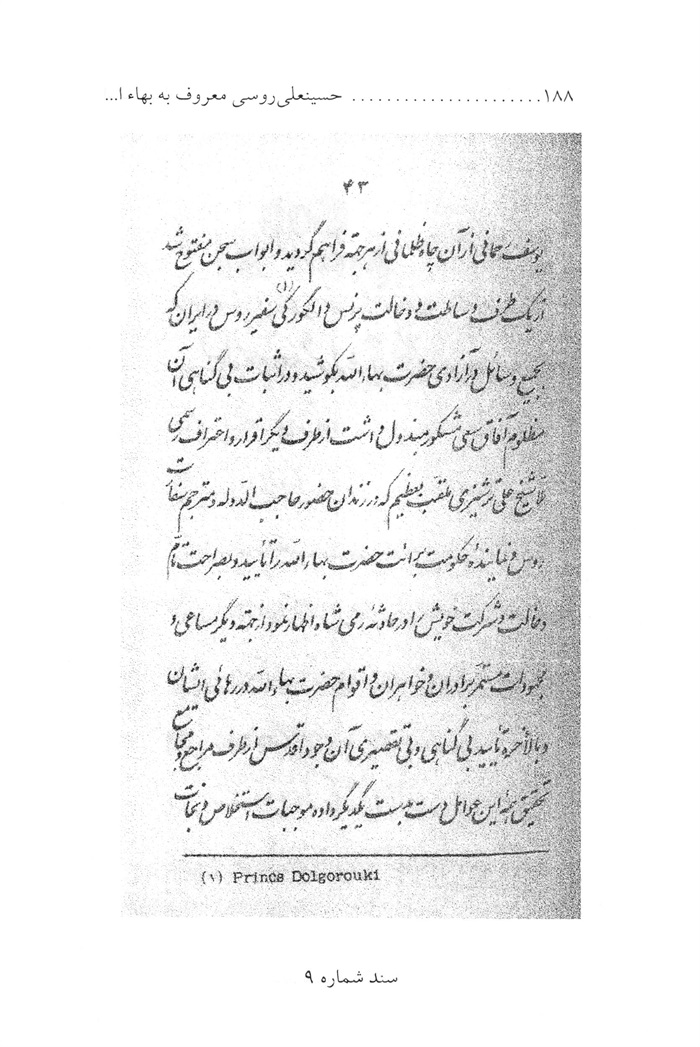 ۱۸۸ ...................... حسینعلی روسی معروف به بهاء ا...
۴۳
یوسف رحمانی از آن چاه ظلمانی از هر جهة فراهم گردید و ابواب سجن مفتوح شد
از یک طرف وساطت و دخالت پرنس دالگورکی (۱) سفیر روس در ایران که
بجمیع وسائل در آزادی حضرت بهاءالله بکوشید و در اثبات بی گناهی آن
مظلوم آفاق سعی مشکور مبذول داشت از طرف دیگر اقرار و اعتراف رسمی
ملا شیخ علی ترشیزی ملقب بعظیم که در زندان حضور حاجب الدوله و مترجم سفارت
روس و نماینده حکومت برائت حضرت بهاءالله را تأیید و بصراحت تام
دخالت و شرکت خویش را در حادثه رمی شاه اظهار نمود از جهة دیگر مساعی و
مجهودات مستمر برادران و خواهران و اقوام حضرت بهاءالله در رهائی ایشان
و بالأخره تأیید بی گناهی و بی تقصیری آن وجود اقدس از طرف مراجع و مجامع
تحقیق همه این عوامل دست بدست یکدیگر داده موجبات استخلاص و نجات
(۱) Prince Dolgorouki
سند شماره ۹